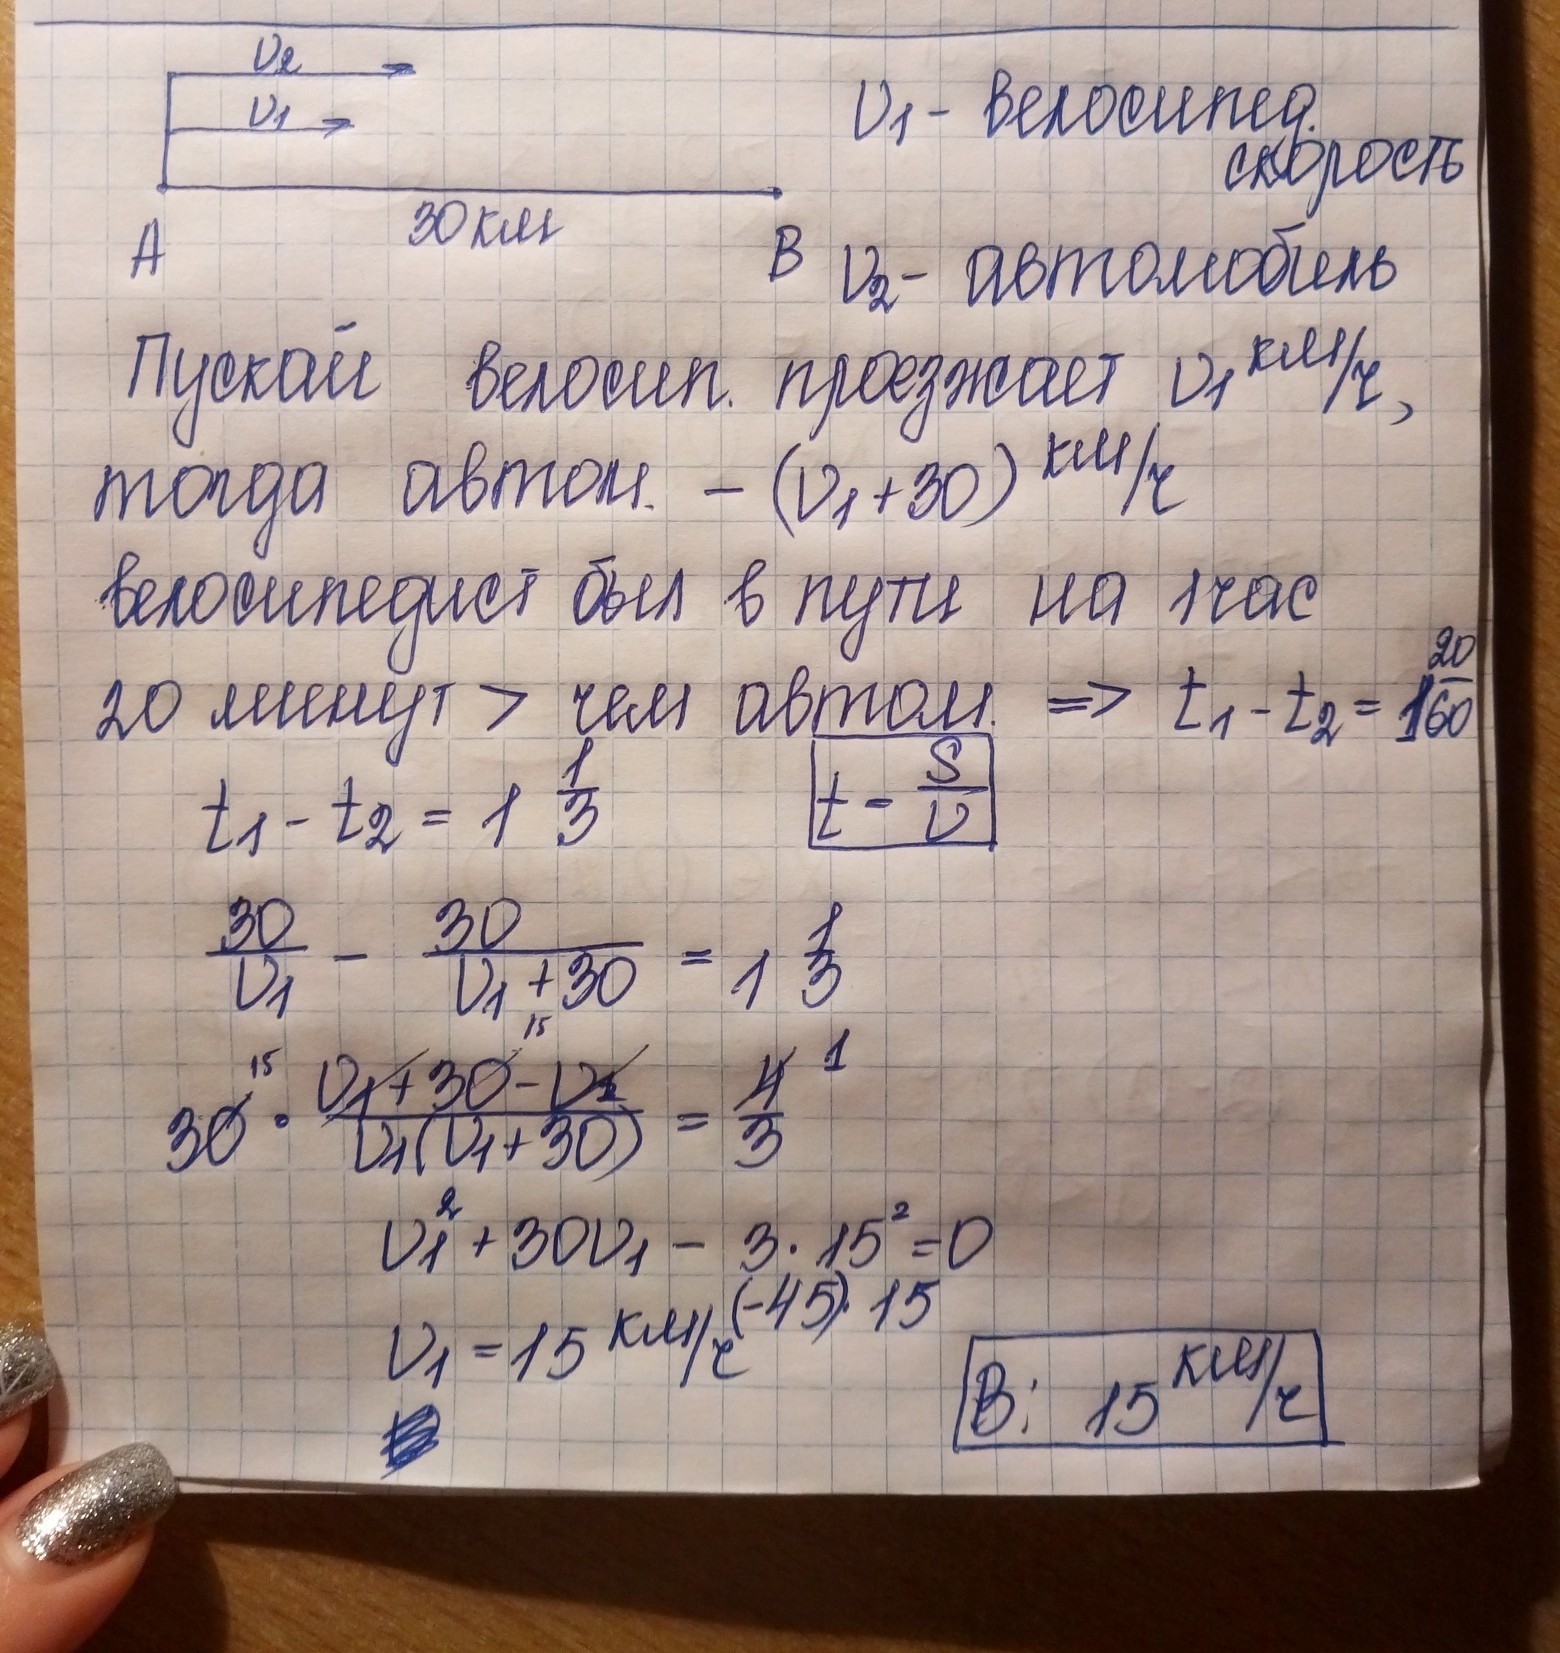 υ2
υ1
30 км
А
В
υ1 - велосипед.
скорость
υ2 - автомобиль
Пускай велосип. проезжает υ1 км/ч,
тогда автом. - (υ1 + 30) км/ч
велосипедист был в пути на 1 час
20 минут > чем автом. => t1 - t2 = 1 20/60
t1 - t2 = 1 1/3
t = S/υ
30/υ1 - 30/(υ1 + 30) = 1 1/3
15 15 1
30 · (υ1 + 30 - υ1)/(υ1(υ1 + 30)) = 4/3
υ1² + 30υ1 - 3 · 15² = 0
(-45) · 15
υ1 = 15 км/ч
В: 15 км/ч